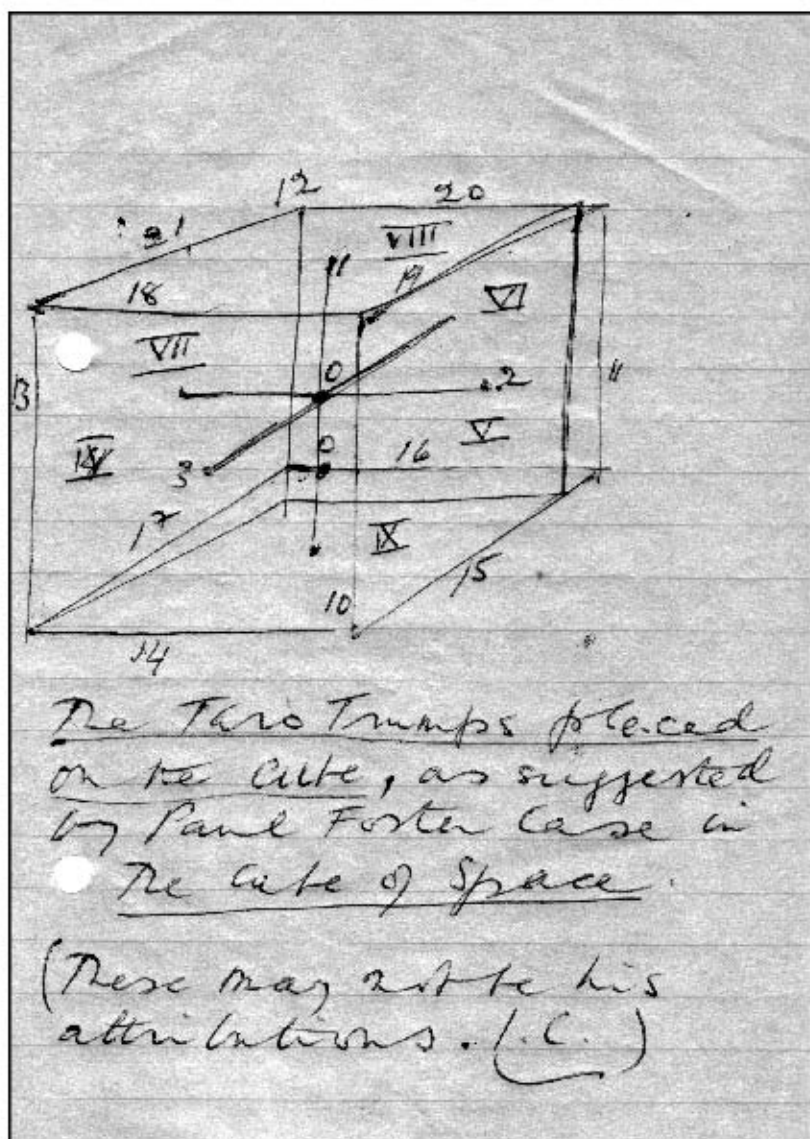 12 20
21 VIII
18 19 VI
VII 0
13 2 11
IV V
3 0 16
17 IX
10 15
14
The Taro Trumps placed
on the Cube, as suggested
by Paul Foster Case in
The Cube of Space.
(These may not be his
attributions. (.C.)